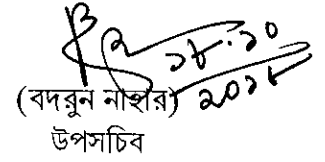 ১৮.১০
২০১৮
(বদরুন নাহার)
উপসচিব